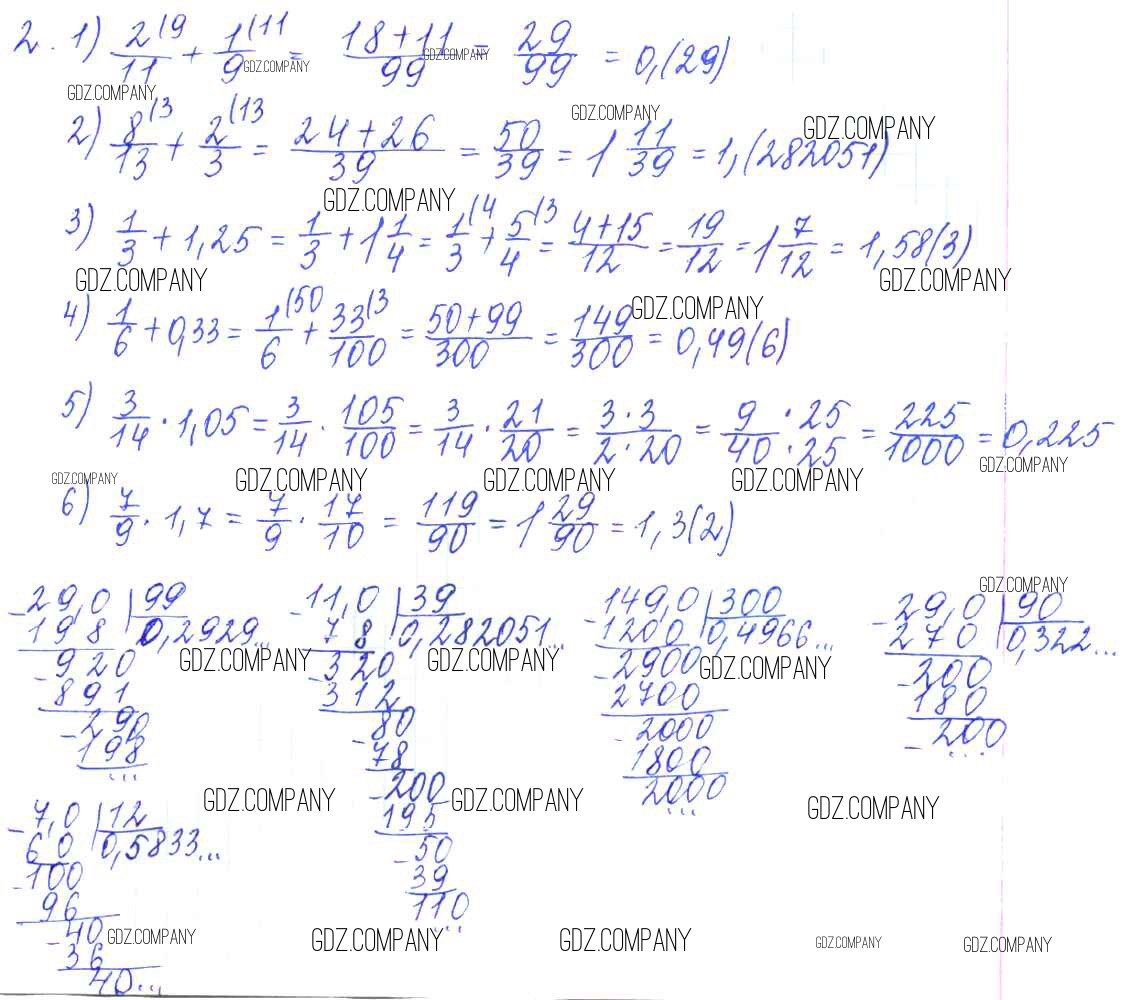 2. 1) 2(9/11 + 1(11/9 = 18+11/99 = 29/99 = 0,(29)
GDZ.COMPANY GDZ.COMPANY GDZ.COMPANY
2) 8(3/13 + 2(13/3 = 24+26/39 = 50/39 = 1 11/39 = 1,(282051)
GDZ.COMPANY GDZ.COMPANY GDZ.COMPANY
3) 1/3 + 1,25 = 1/3 + 1 1/4 = 1(4/3 + 5(3/4 = 4+15/12 = 19/12 = 1 7/12 = 1,58(3)
GDZ.COMPANY GDZ.COMPANY GDZ.COMPANY
4) 1/6 + 0,33 = 1(50/6 + 33(3/100 = 50+99/300 = 149/300 = 0,49(6)
5) 3/14 · 1,05 = 3/14 · 105/100 = 3/14 · 21/20 = 3·3/2·20 = 9·25/40·25 = 225/1000 = 0,225
GDZ.COMPANY GDZ.COMPANY GDZ.COMPANY GDZ.COMPANY GDZ.COMPANY
6) 7/9 · 1,7 = 7/9 · 17/10 = 119/90 = 1 29/90 = 1,3(2)
GDZ.COMPANY
-29,0 | 99
198 | 0,2929...
-920
891
-290
198
...
-11,0 | 39
78 | 0,282051...
-320
312
-80
78
-200
195
-50
39
110
...
-149,0 | 300
1200 | 0,4966...
-2900
2700
-2000
1800
2000
...
-29,0 | 90
270 | 0,322...
-200
180
-200
...
GDZ.COMPANY GDZ.COMPANY GDZ.COMPANY
GDZ.COMPANY GDZ.COMPANY GDZ.COMPANY
-7,0 | 12
60 | 0,5833...
-100
96
-40
36
40...
GDZ.COMPANY GDZ.COMPANY GDZ.COMPANY GDZ.COMPANY GDZ.COMPANY